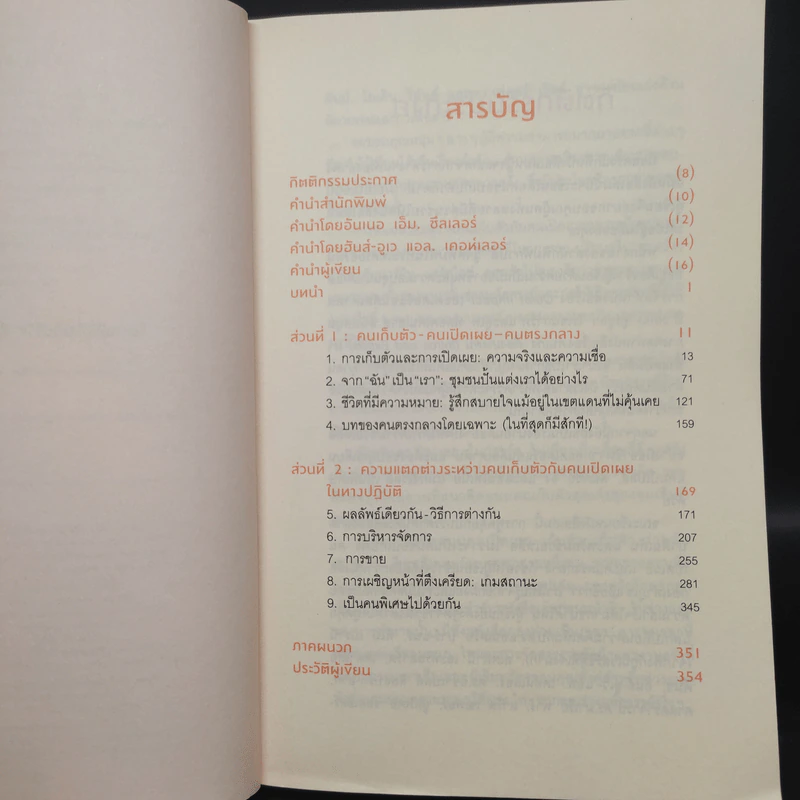 สารบัญ
กิตติกรรมประกาศ (8)
คำนำสำนักพิมพ์ (10)
คำนำโดยอันเนอ เอ็ม. ชีลเลอร์ (12)
คำนำโดยฮันส์-อูเว แอล. เคอห์เลอร์ (14)
คำนำผู้เขียน (16)
บทนำ 1
ส่วนที่ 1 : คนเก็บตัว-คนเปิดเผย-คนตรงกลาง 11
1. การเก็บตัวและการเปิดเผย: ความจริงและความเชื่อ 13
2. จาก “ฉัน” เป็น “เรา”: ชุมชนปั้นแต่งเราได้อย่างไร 71
3. ชีวิตที่มีความหมาย: รู้สึกสบายใจแม้อยู่ในเขตแดนที่ไม่คุ้นเคย 121
4. บทของคนตรงกลางโดยเฉพาะ (ในที่สุดก็มีสักที!) 159
ส่วนที่ 2 : ความแตกต่างระหว่างคนเก็บตัวกับคนเปิดเผย
ในทางปฏิบัติ 169
5. ผลลัพธ์เดียวกัน-วิธีการต่างกัน 171
6. การบริหารจัดการ 207
7. การขาย 255
8. การเผชิญหน้าที่ตึงเครียด: เกมสถานะ 281
9. เป็นคนพิเศษไปด้วยกัน 345
ภาคผนวก 351
ประวัติผู้เขียน 354